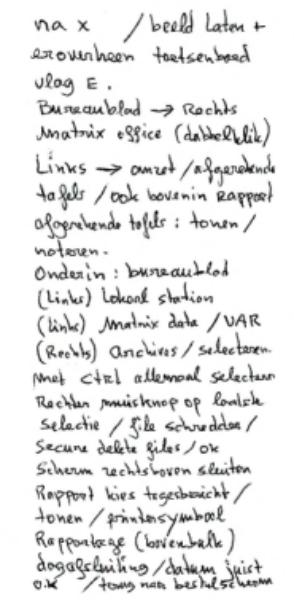 na x / beeld Laten +
eroverheen toetsenbord
vlag E.
Bureaublad → Rechts
Matrix office (dubbelklik)
Links → omzet / afgerekende
tafels / ook bovenin Rapport
afgerekende tafels : tonen /
noteren.
Onderin : bureaublad
(Links) Lokaal station
(links) Matrix data / VAR
(Rechts) Archives / selecteren.
met CTRL allemaal selecteren
Rechter muisknop op laatste
selectie / file schredder /
Secure delete files / ok
Scherm rechtsboven sluiten
Rapport kies tegesbericht /
tonen / printersymbool
Rapportage (bovenbalk)
dagafsluiting / datum juist
o.k / terug naar bestelscherm